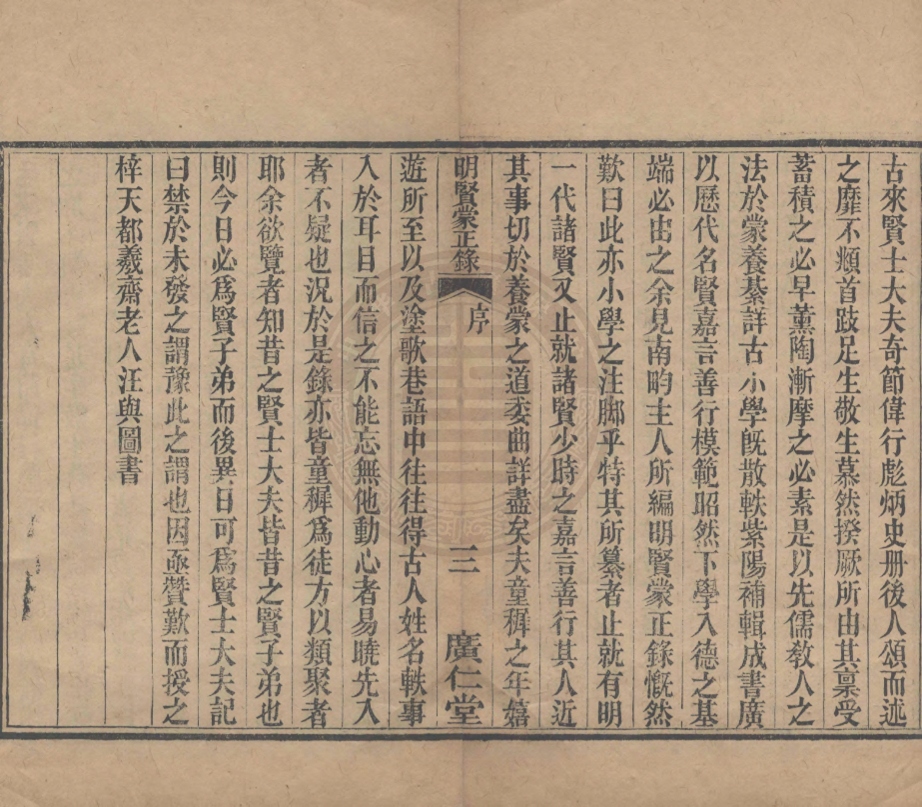 古來賢士大夫奇節偉行彪炳史册後人頌而述
之靡不頫首跂足生敬生慕然揆厥所由其禀受
蓄積之必早薰陶漸摩之必素是以先儒敎人之
法於蒙養綦詳古小學旣散軼紫陽補輯成書廣
以歷代名賢嘉言善行模範昭然下學入德之基
端必由之余見南畇主人所編明賢蒙正錄慨然
歎曰此亦小學之注脚乎特其所纂者止就有明
一代諸賢又止就諸賢少時之嘉言善行其人近
其事切於養蒙之道委曲詳盡矣夫童穉之年嬉
明賢蒙正錄 序 三 廣仁堂
遊所至以及塗歌巷語中往往得古人姓名軼事
入於耳目而信之不能忘無他動心者易曉先入
者不疑也況於是錄亦皆童穉爲徒方以類聚者
耶余欲覽者知昔之賢士大夫皆昔之賢子弟也
則今日必爲賢子弟而後異日可爲賢士大夫記
曰禁於未發之謂豫此之謂也因亟贊歎而授之
梓天都羲齋老人汪與圖書